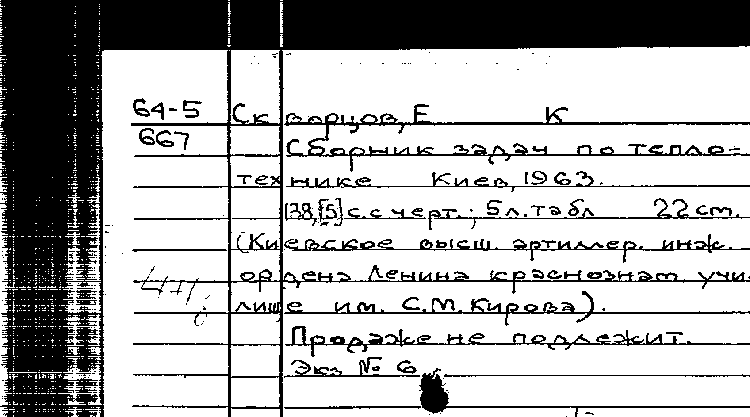 64-5 Скворцов, Е К
667 Сборник задач по тепло-
технике Киев, 1963.
138,[5] с. с черт.; 5 л. табл 22 cm.
(Киевское высш. артиллер. инж.
ордена Ленина краснознам учи-
лище им. С.М. Кирова).
Продаже не подлежит.
Экз № 6